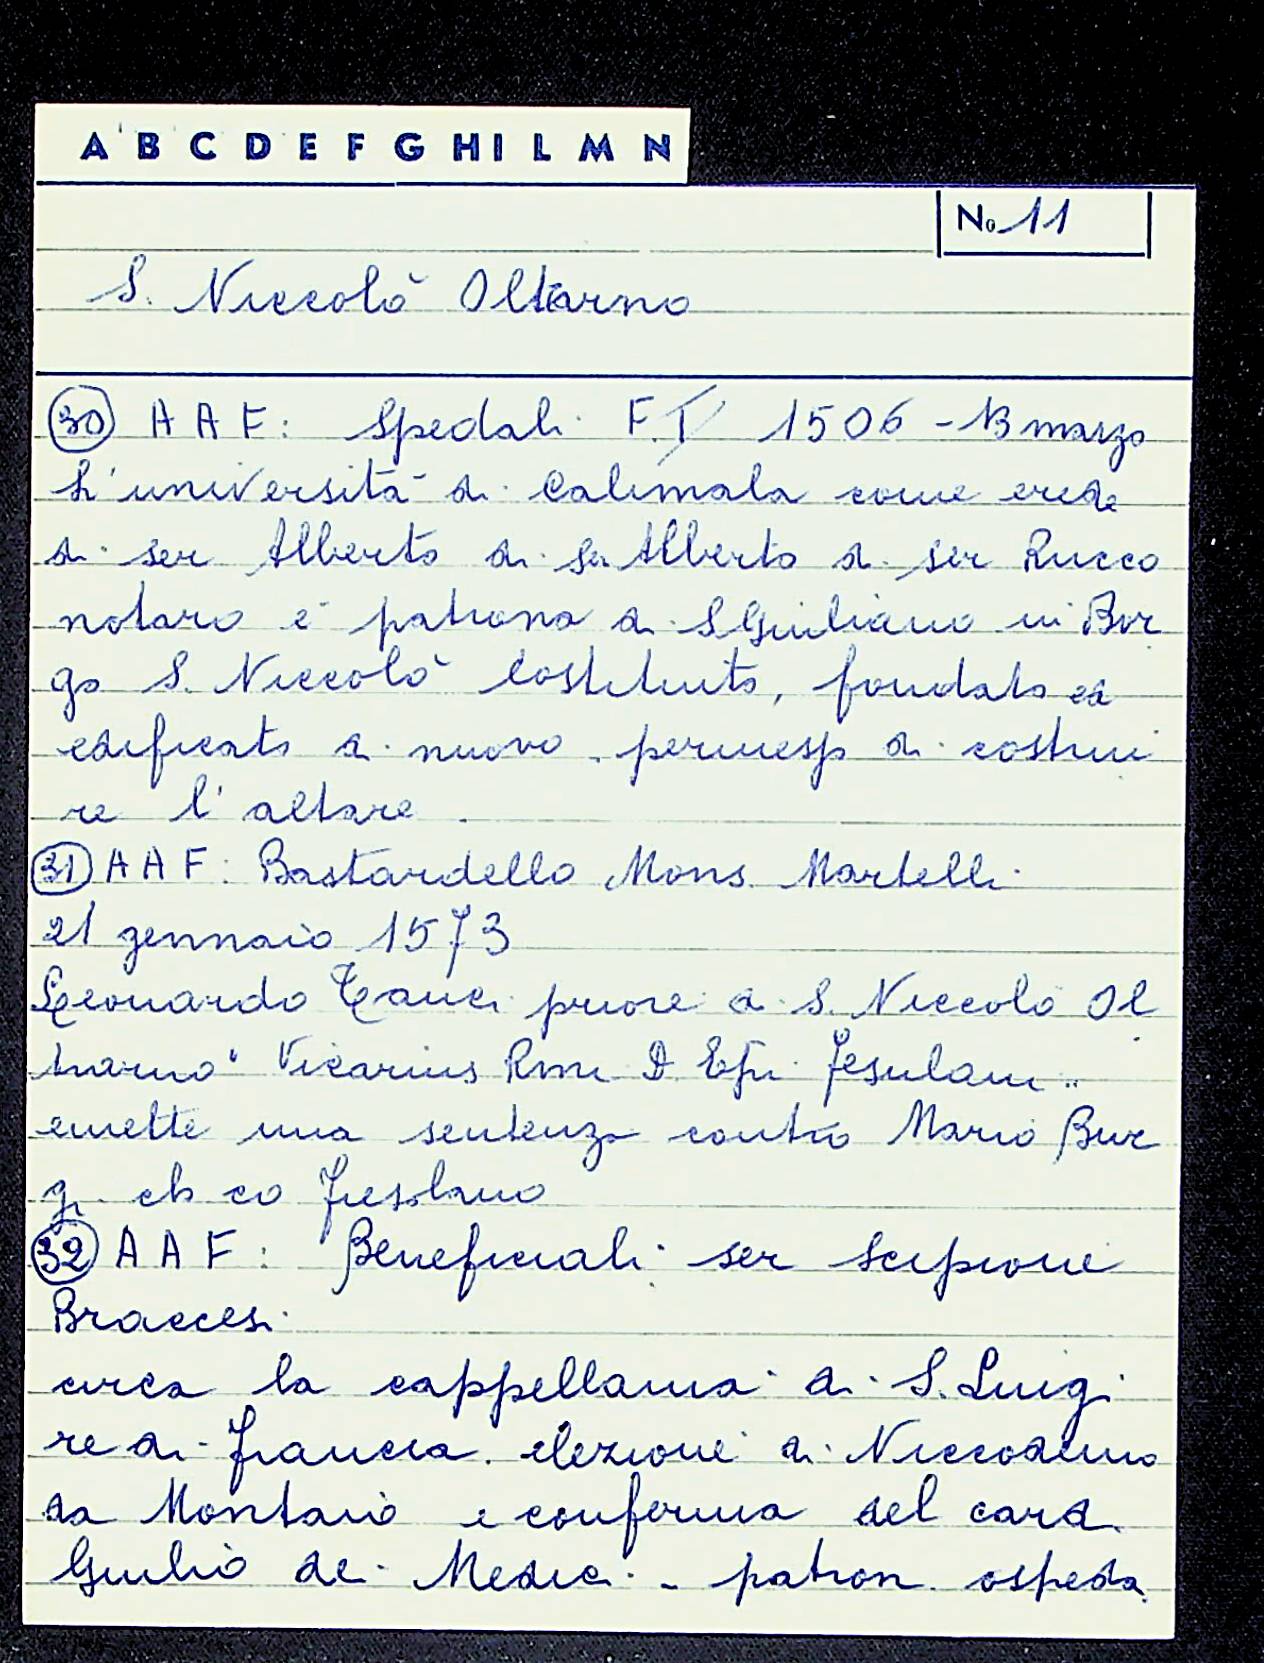 A B C D E F G H I L M N
No 11
S. Niccolò Oltrarno
30 A A F: Spedali F. I 1506 - 13 marzo
L'università di Calimala come erede
di ser Alberto di ser Alberto di ser Rucco
notaro è patrona di S Giuliano in Bor
go S. Niccolò costituito, fondato ed
edificato di nuovo. permesso di costrui
re l'altare.
31 A A F: Bastardello Mons. Martelli
21 gennaio 1573
Leonardo Tanci priore di S. Niccolò Ol
trarno "Vicarius Rmi D. Epi. Fesulani"
emette una sentenza contro Mario Bur
gi cherico fiesolano
32 A A F: Beneficiali ser Scipione
Braccesi
circa la cappellania di S. Luigi
re di Francia. elezione di Niccodemo
da Montaio e conferma del card.
Giulio de Medici - patron ospeda